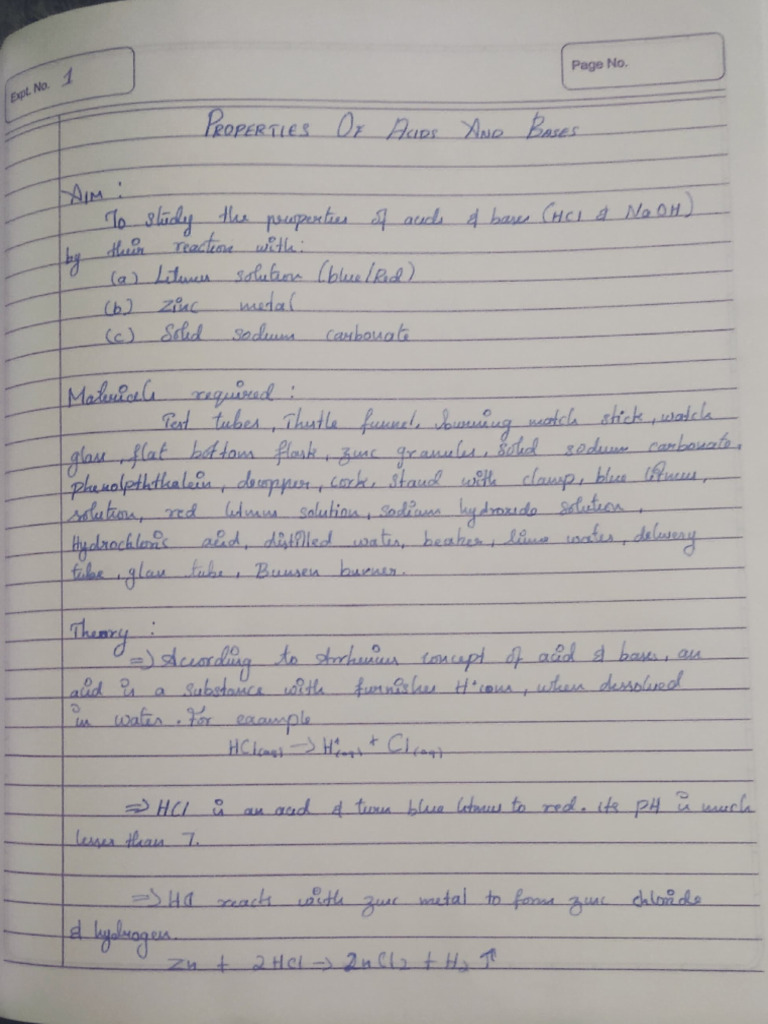 Expt. No. 1
Page No.
PROPERTIES OF ACIDS AND BASES
AIM :
To study the properties of acids & bases (HCl & NaOH)
by their reaction with:
(a) Litmus solution (blue/Red)
(b) Zinc metal
(c) Solid sodium carbonate
Materials required :
Test tubes, Thistle funnel, burning match stick, watch
glass, flat bottom flask, zinc granules, solid sodium carbonate,
phenolpththalein, dropper, cork, stand with clamp, blue litmus,
solution, red litmus solution, sodium hydroxide solution,
Hydrochloric acid, distilled water, beaker, lime water, delivery
tube, glass tube, Bunsen burner.
Theory :
=> According to Arrhenius concept of acid & bases, an
acid is a substance with furnishes H⁺ions, when dessolved
in water. For example
HCl(aq) → H⁺(aq) + Cl(aq)
=> HCl is an acid & turns blue litmus to red. its PH is much
lesser than 7.
=> HCl reacts with zinc metal to form zinc chloride
& hydrogen.
Zn + 2HCl → ZnCl2 + H2 ↑